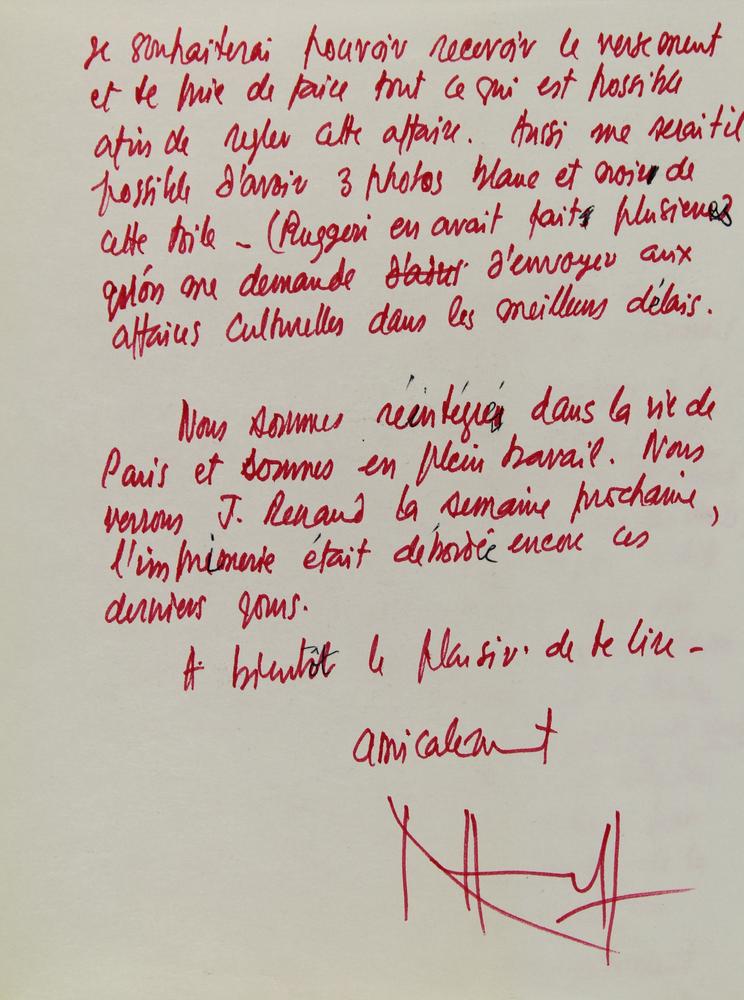 Je souhaiterai pouvoir recevoir le versement
et te prie de faire tout ce qui est possible
afin de regler cette affaire. Aussi me serait il
possible d'avoir 3 photos blanc et noir de
cette toile - (Ruggeri en avait fait plusieurs
qu'on me demande d'envoyer aux
affaires culturelles dans les meilleurs délais.
Nous sommes réintégrés dans la vie de
Paris et sommes en plein travail. Nous
verrons J. Renaud la semaine prochaine,
l'imprimerie était débordée encore ces
derniers jours.
A bientôt le plaisir de te lire -
amicalement